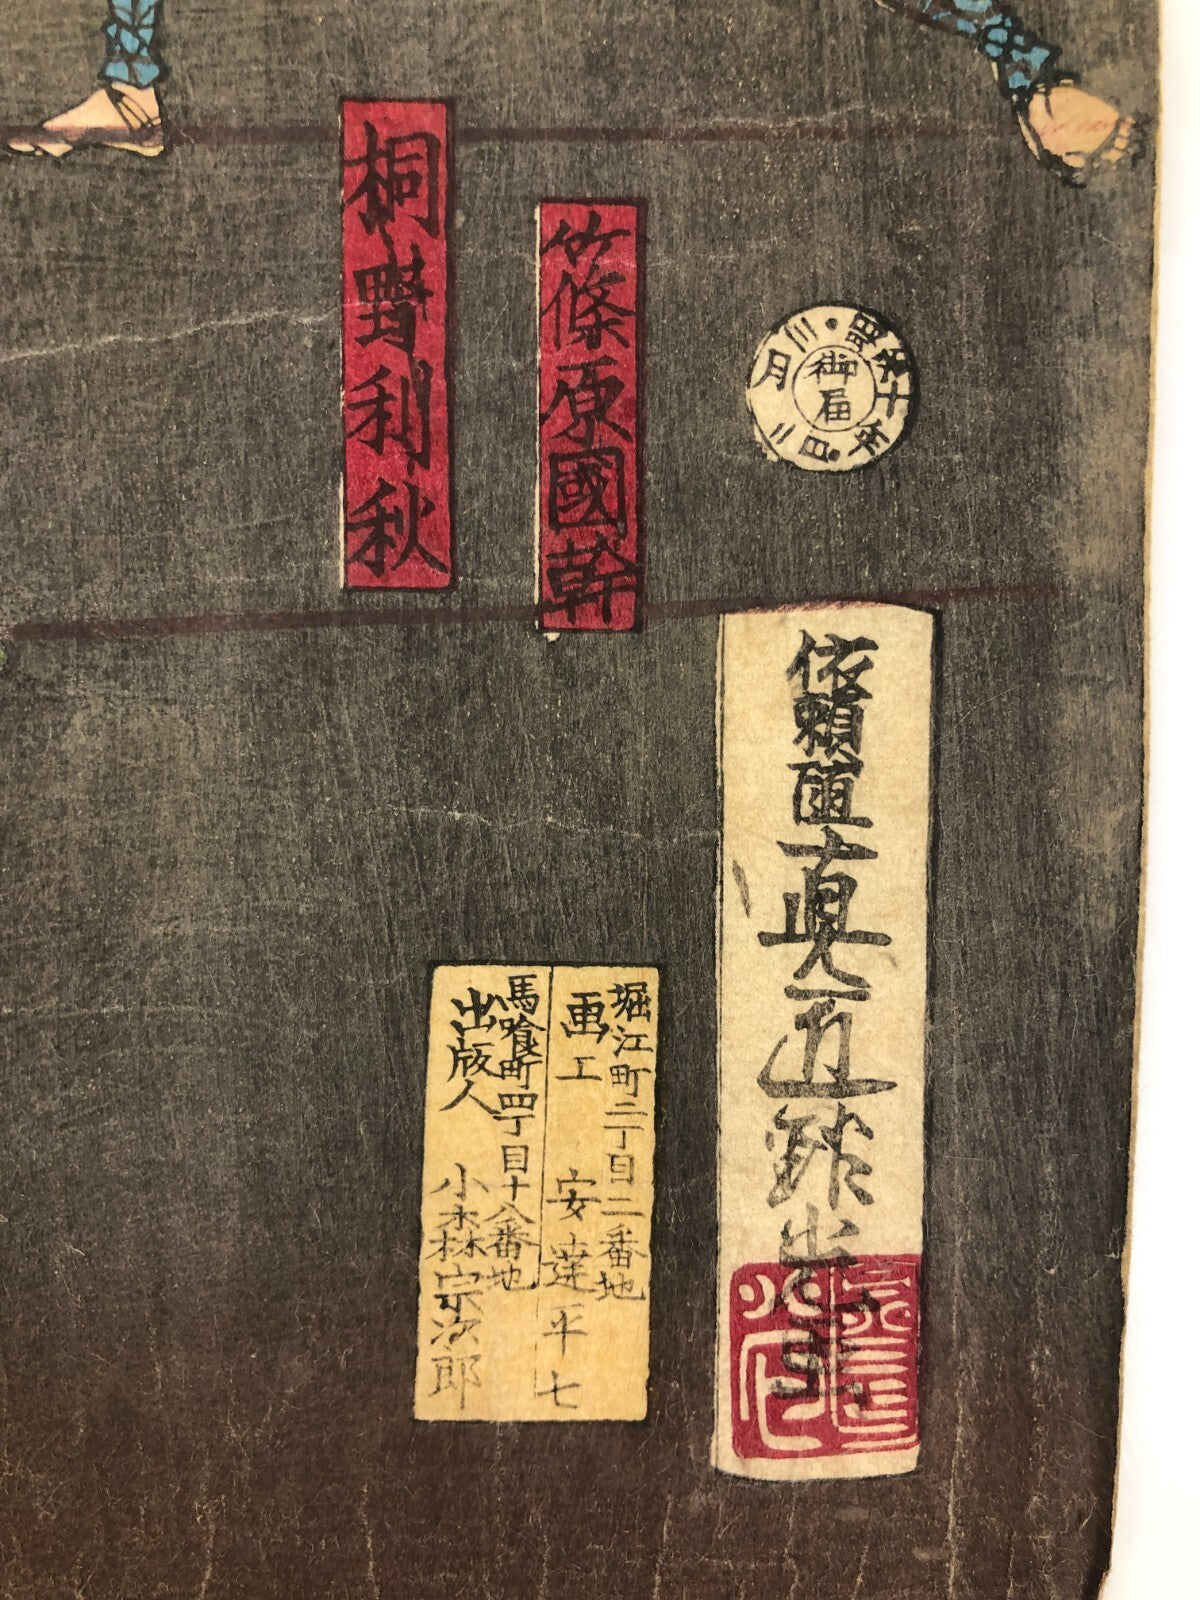 明治十年
三月
二日
御届
篠原國幹
桐野利秋
依頼
真匠銀光画
堀江町二丁目二番地
画工 安達平七
馬喰町四丁目十八番地
出版人 小森宗次郎